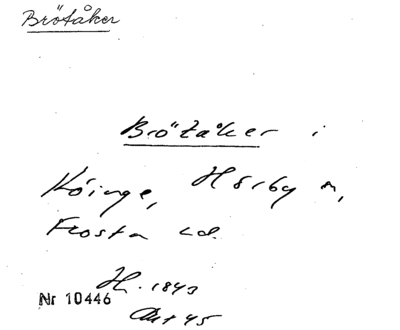 Brötåker
Brötåker i
Köinge, Hörby sn,
Frosta hd.
H. 1843
Nr 10446
Akt 45